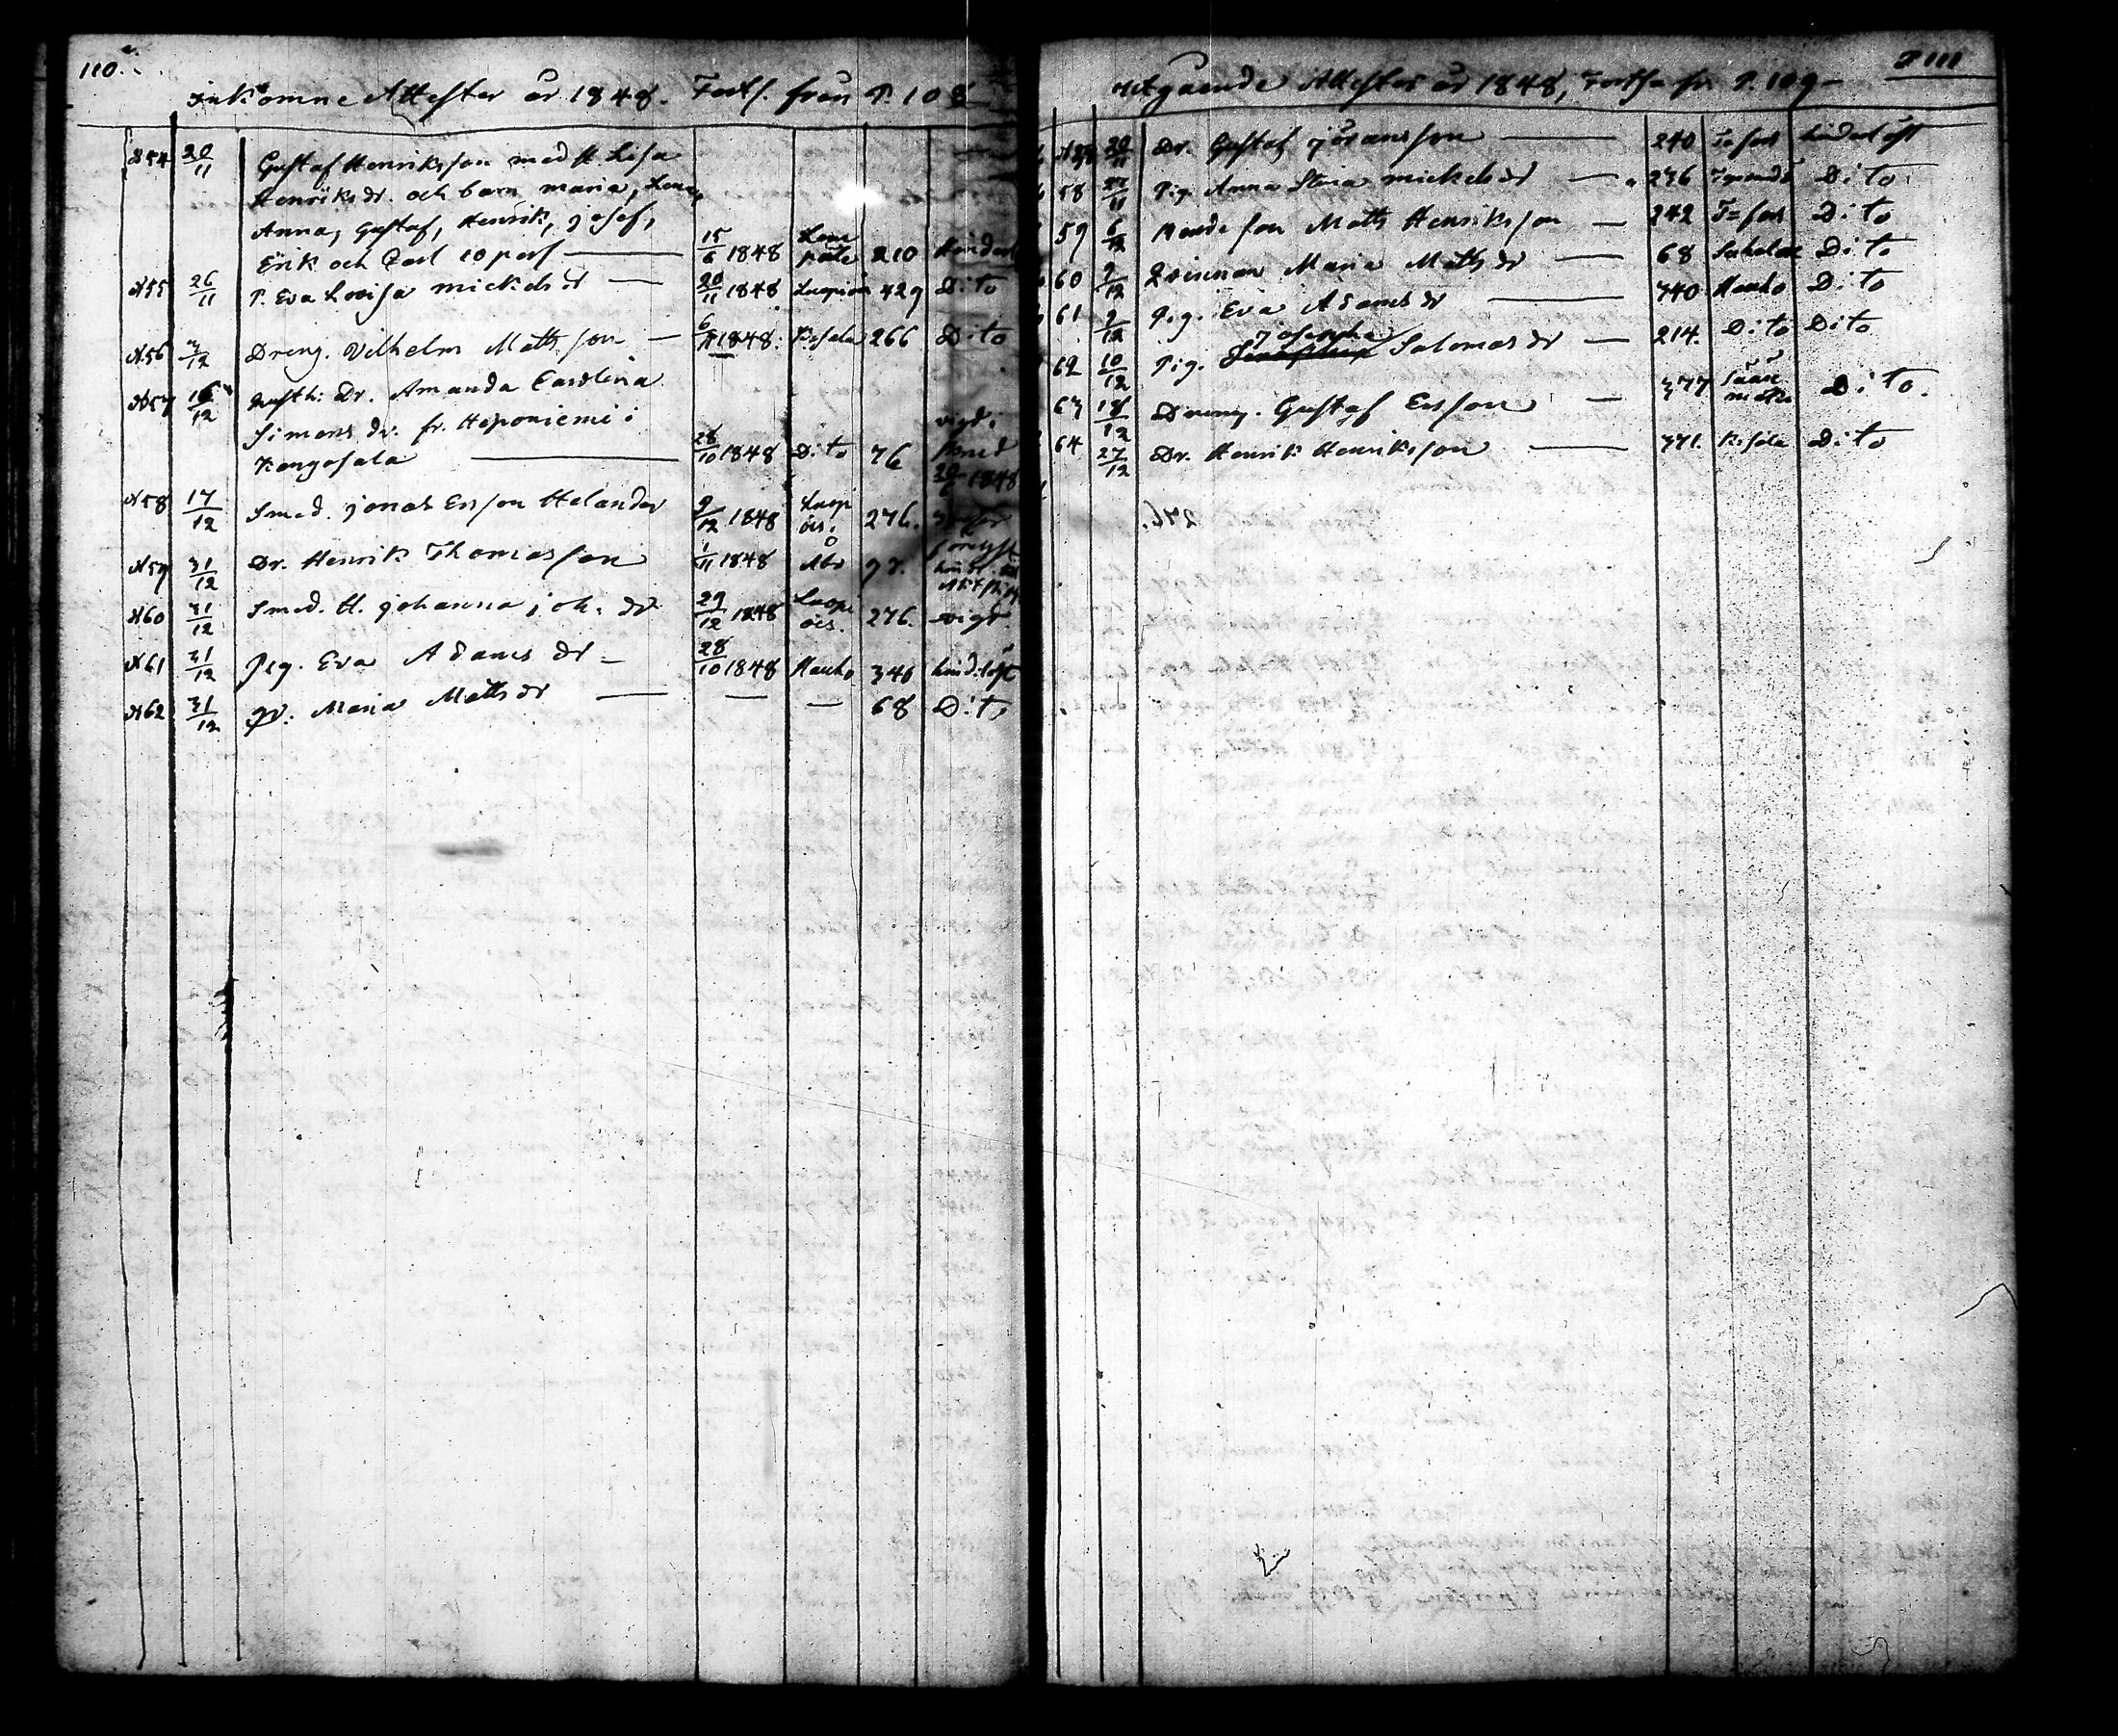 110.
Inkomne Attester år 1848. Forts. från P. 108
N54 20/11 Gustaf Henriksson med H. Lisa
Henriksdr. och barn Maria, Lena,
Anna, Gustaf, Henrik, Josef,
Erik och Carl 10 pers — 15/6 1848 210
N55 26/11 P. Eva Lovisa Mickelsdr — 20/11 1848 429 Dito
N56 3/12 Dreng. Vilhelm Mattsson — 1848. 266 Dito
N57 16/12 Dr. Amanda Carolina
Simonsdr. fr. Haponiemi i
Kangasala — 28/10 1848 Dito 76 1848
N58 17/12 Smed. Jonas Ersson Helander 9/12 1848 276.
N59 31/12 Dr. Henrik Thomasson 1/11 1848 Åbo
N60 31/12 Smed. H. Johanna Joh. dr 29/12 1848 276. vigd
N61 31/12 Pig. Eva Adamsdr — 28/10 1848 Hauho 340 hind.löst
N62 31/12 Qv. Maria Mattsdr — — — 68 Dito
P 111
Utgående Attester år 1848, Forts. fr. P. 109 —
20/11 Dr. Gustaf Göransson — 240 hinderlöst
58 Pig. Anna Stina Mickelsdr — 276 Dito
59 6/12 Bondeson Matts Henriksson — 242 Dito
60 9/12 Qvinnan Maria Mattsdr 68 Dito
61 9/12 Pig. Eva Adamsdr — 340 Hauho Dito
62 10/12 Pig. Josepha Salomonsdr — 214. Dito Dito
63 18/12 Dreng. Gustaf Ersson — 377 Dito.
64 27/12 Dr. Henrik Henriksson — 371. Dito